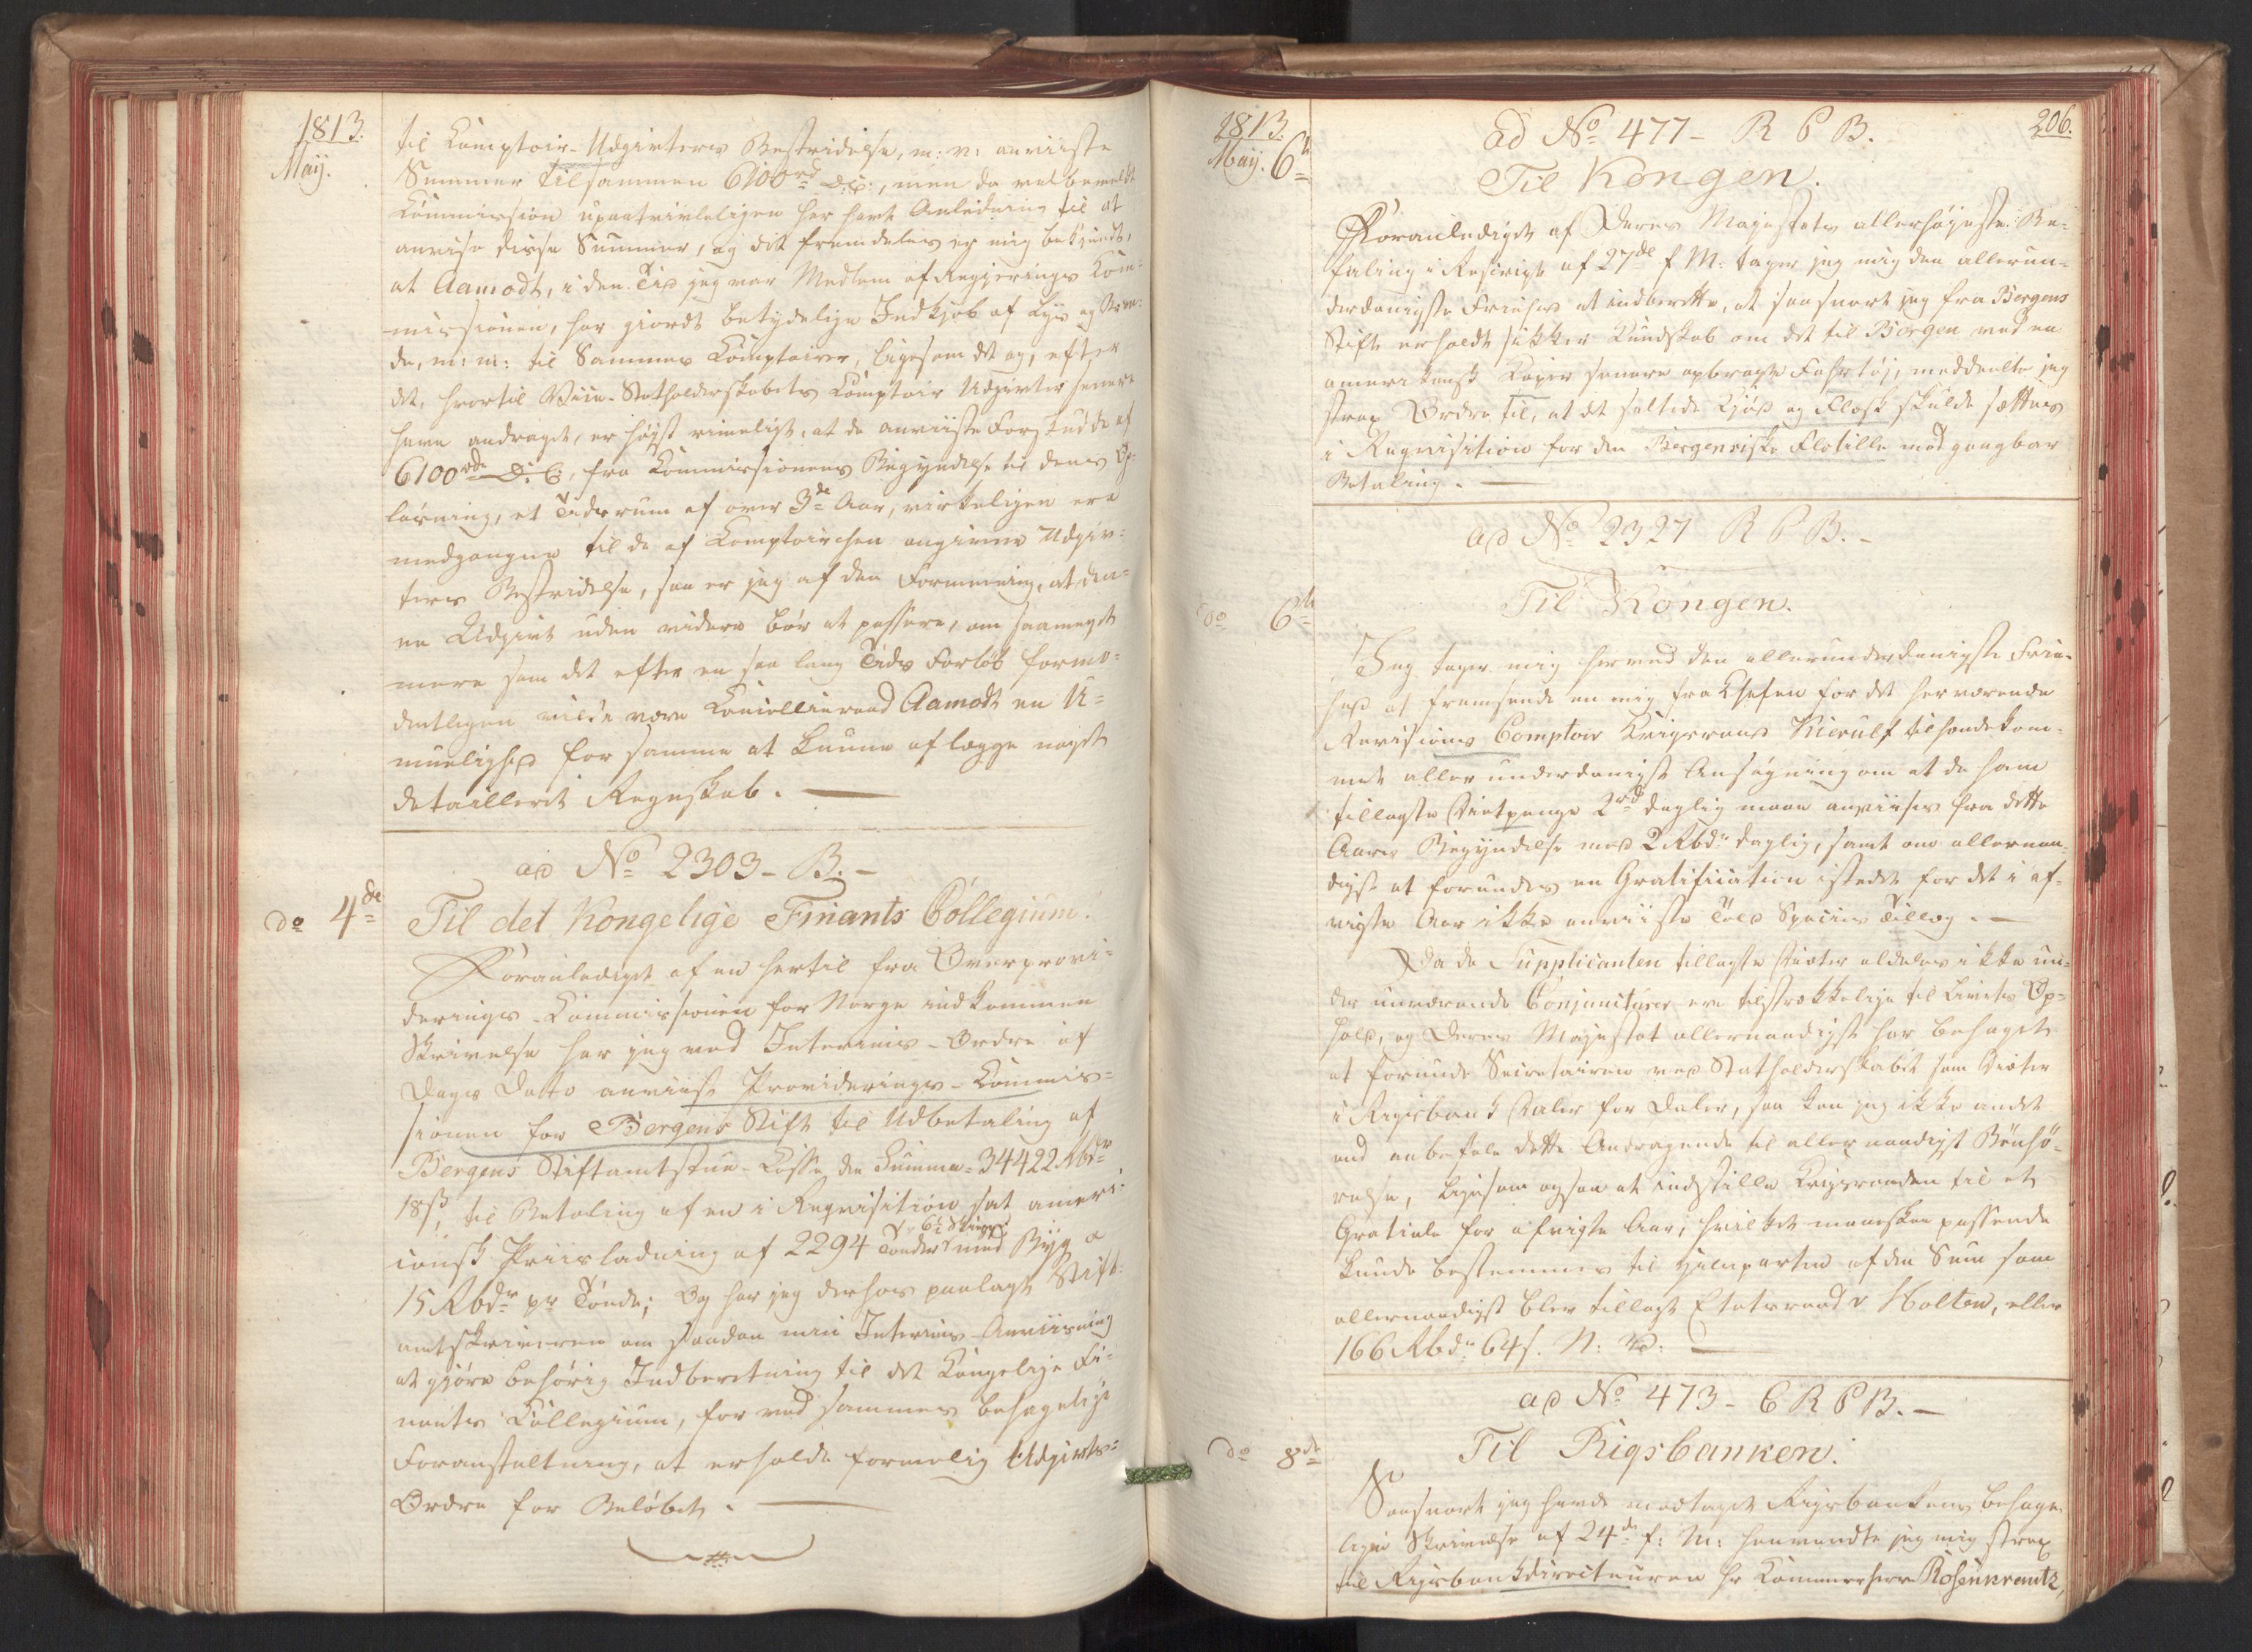 1813.
Maÿ.
til Comptoir-Udgivters Bestridelse, m: v: anviiste
Summer tilsammen 6100rd D: C:, men da velbemeldte
Commission upaatvivleligen har havt Anledning til at
anvise disse Summer, og det fremdeles er mig bekjendt,
at Aamodt, i den Tid jeg var Medlem af Regjerings Com-
missionen, har giordt betydelige Indkjøb af Lys og Bræn-
de, m: m: til Sammes Comptoirer, ligesom det og, efter
det, hvortil Vice-Statholderskabets Comptoir Udgivter senere
have andraget, er høist rimeligt, at de anviiste Forskudde af
6100rd D. C, fra Commissionens Begyndelse til dens Op-
løsning, et Tidsrum af over 3de Aar, virkeligen ere
medgangne til de af Comptoirchen angivne Udgiv-
ters Bestridelse, saa er jeg af den Formening, at den-
ne Udgivt uden videre bør at passere, om saameget
mere som det efter en saa lang Tids Forløb formo-
dentligen vilde være Cancellieraad Aamodt en U-
muelighed for samme at kunne aflægge noget
detailleret Regnskab.
ad No 2303 - B. -
do 4de
Til det Kongelige Finants Collegium.
Foranlediget af en hertil fra Overprovi-
derings-Commissionen for Norge indkommen
Skrivelse har jeg ved Interims-Ordre af
Dags Dato anviist Providerings-Commis-
sionen for Bergens Stift til Udbetaling af
Bergens Stiftamtstue-Casse den Summa 34422 Rbdr
18s, til Betaling af en i Requisition sat ameri-
cansk Priisladning af 2294 Tønder med Byg a
15 Rbdr pr Tønde; Og har jeg derhos paalagt Stift-
amtskriveren om saadan min Interims-Anviisning
at gjøre behørig Indberetning til det Kongelige Fi-
nants Collegium, for ved sammes behagelige
Foranstaltning, at erholde formelig Udgivts-
Ordre for Beløbet.
1813.
Maÿ. 6te
206.
ad No 477 - R P B.
Til Kongen.
Foranlediget af Deres Majestets allerhøjeste Be-
faling i Rescript af 27de f. M: tager jeg mig den allerun-
derdanigste Friehed at indberette, at saasnart jeg fra Bergens
Stift erholdt sikker Kundskab om det til Bergen ved en
amerikansk Kaper senere opbragte Fahrtøj, meddeelte jeg
strax Ordre til, at det saltede Kjød og Flesk skulde sættes
i Requisition for den Bergensiske Flotille mod gangbar
Betaling.
ad No 2327 R P B. -
do 6te
Til Kongen.
Jeg tager mig herved den allerunderdanigste Frie-
hed at fremsende en mig fra Chefen for det herværende
Revisions Comptoir Krigsraad Kierulf tilhændekom-
met allerunderdanigst Ansøgning om at de ham
tillagte Dietpenge 2rd daglig maae anviises fra dette
Aars Begyndelse med 2 Rbdr daglig, samt om allernaa-
digst at forundes en Gratification istedet for det i af-
vigte Aar ikke anviiste Told Species Tillæg. -
Da de Supplicanten tillagte Diæter aldeles ikke un-
der nuværende Conjuncturer ere tilstrækkelige til Livets Op-
hold, og Deres Majestet allernaadigst har behaget
at forunde Secretairen ved Statholderskabet sem Diæter
i Rigsbank Daler for Daler, saa kan jeg ikke andet
end anbefale dette Andragende til allernaadigst Bønhø-
relse, ligesom ogsaa at indstille Krigsraaden til et
Gratiale for afvigte Aar, hvilket maaskee passende
kunde bestemmes til Halvparten af den Sum som
allernaadigst blev tillagt Etatsraad v Holten, eller
166 Rbdr 64 s. N. V.
ad No 473 - C R P B. -
do 8de
Til Rigsbanken.
Saasnart jeg havde modtaget Rigsbankens behage-
lige Skrivelse af 24de f: M: henvendte jeg mig strax
til Rigsbankdirecteuren Hr Kammerherre Rosenkrantz,